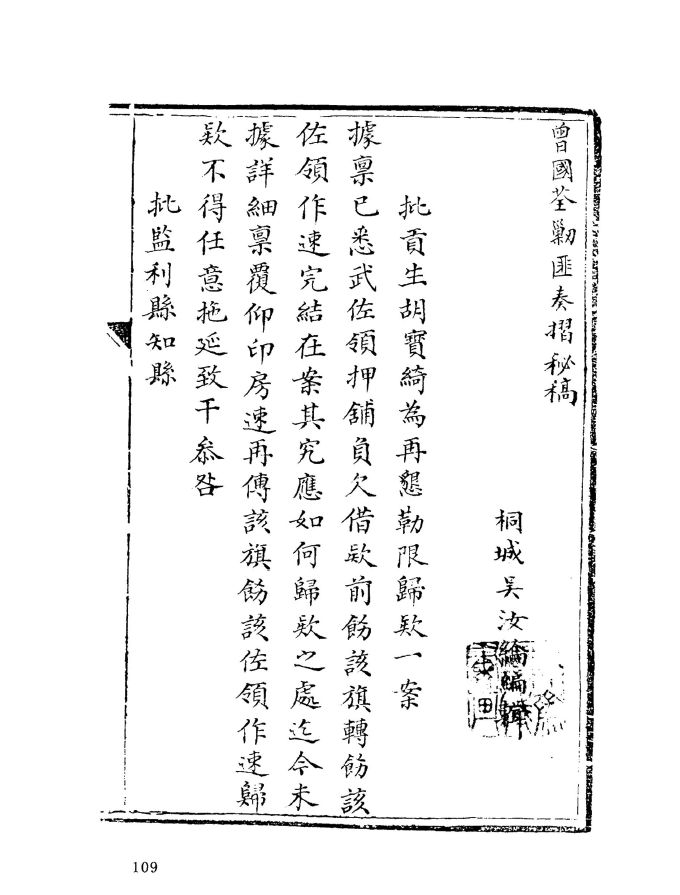 曾國荃勦匪奏摺秘稿
桐城吴汝綸編輯
批貢生胡寶綺為再懇勒限歸欵一案
據禀已悉武佐領押舖負欠借欵前飭該旗轉飭該
佐領作速完結在案其究應如何歸欵之處迄今未
據詳細禀覆仰印房速再傳該旗飭該佐領作速歸
欵不得任意拖延致干叅咎
批監利縣知縣
109